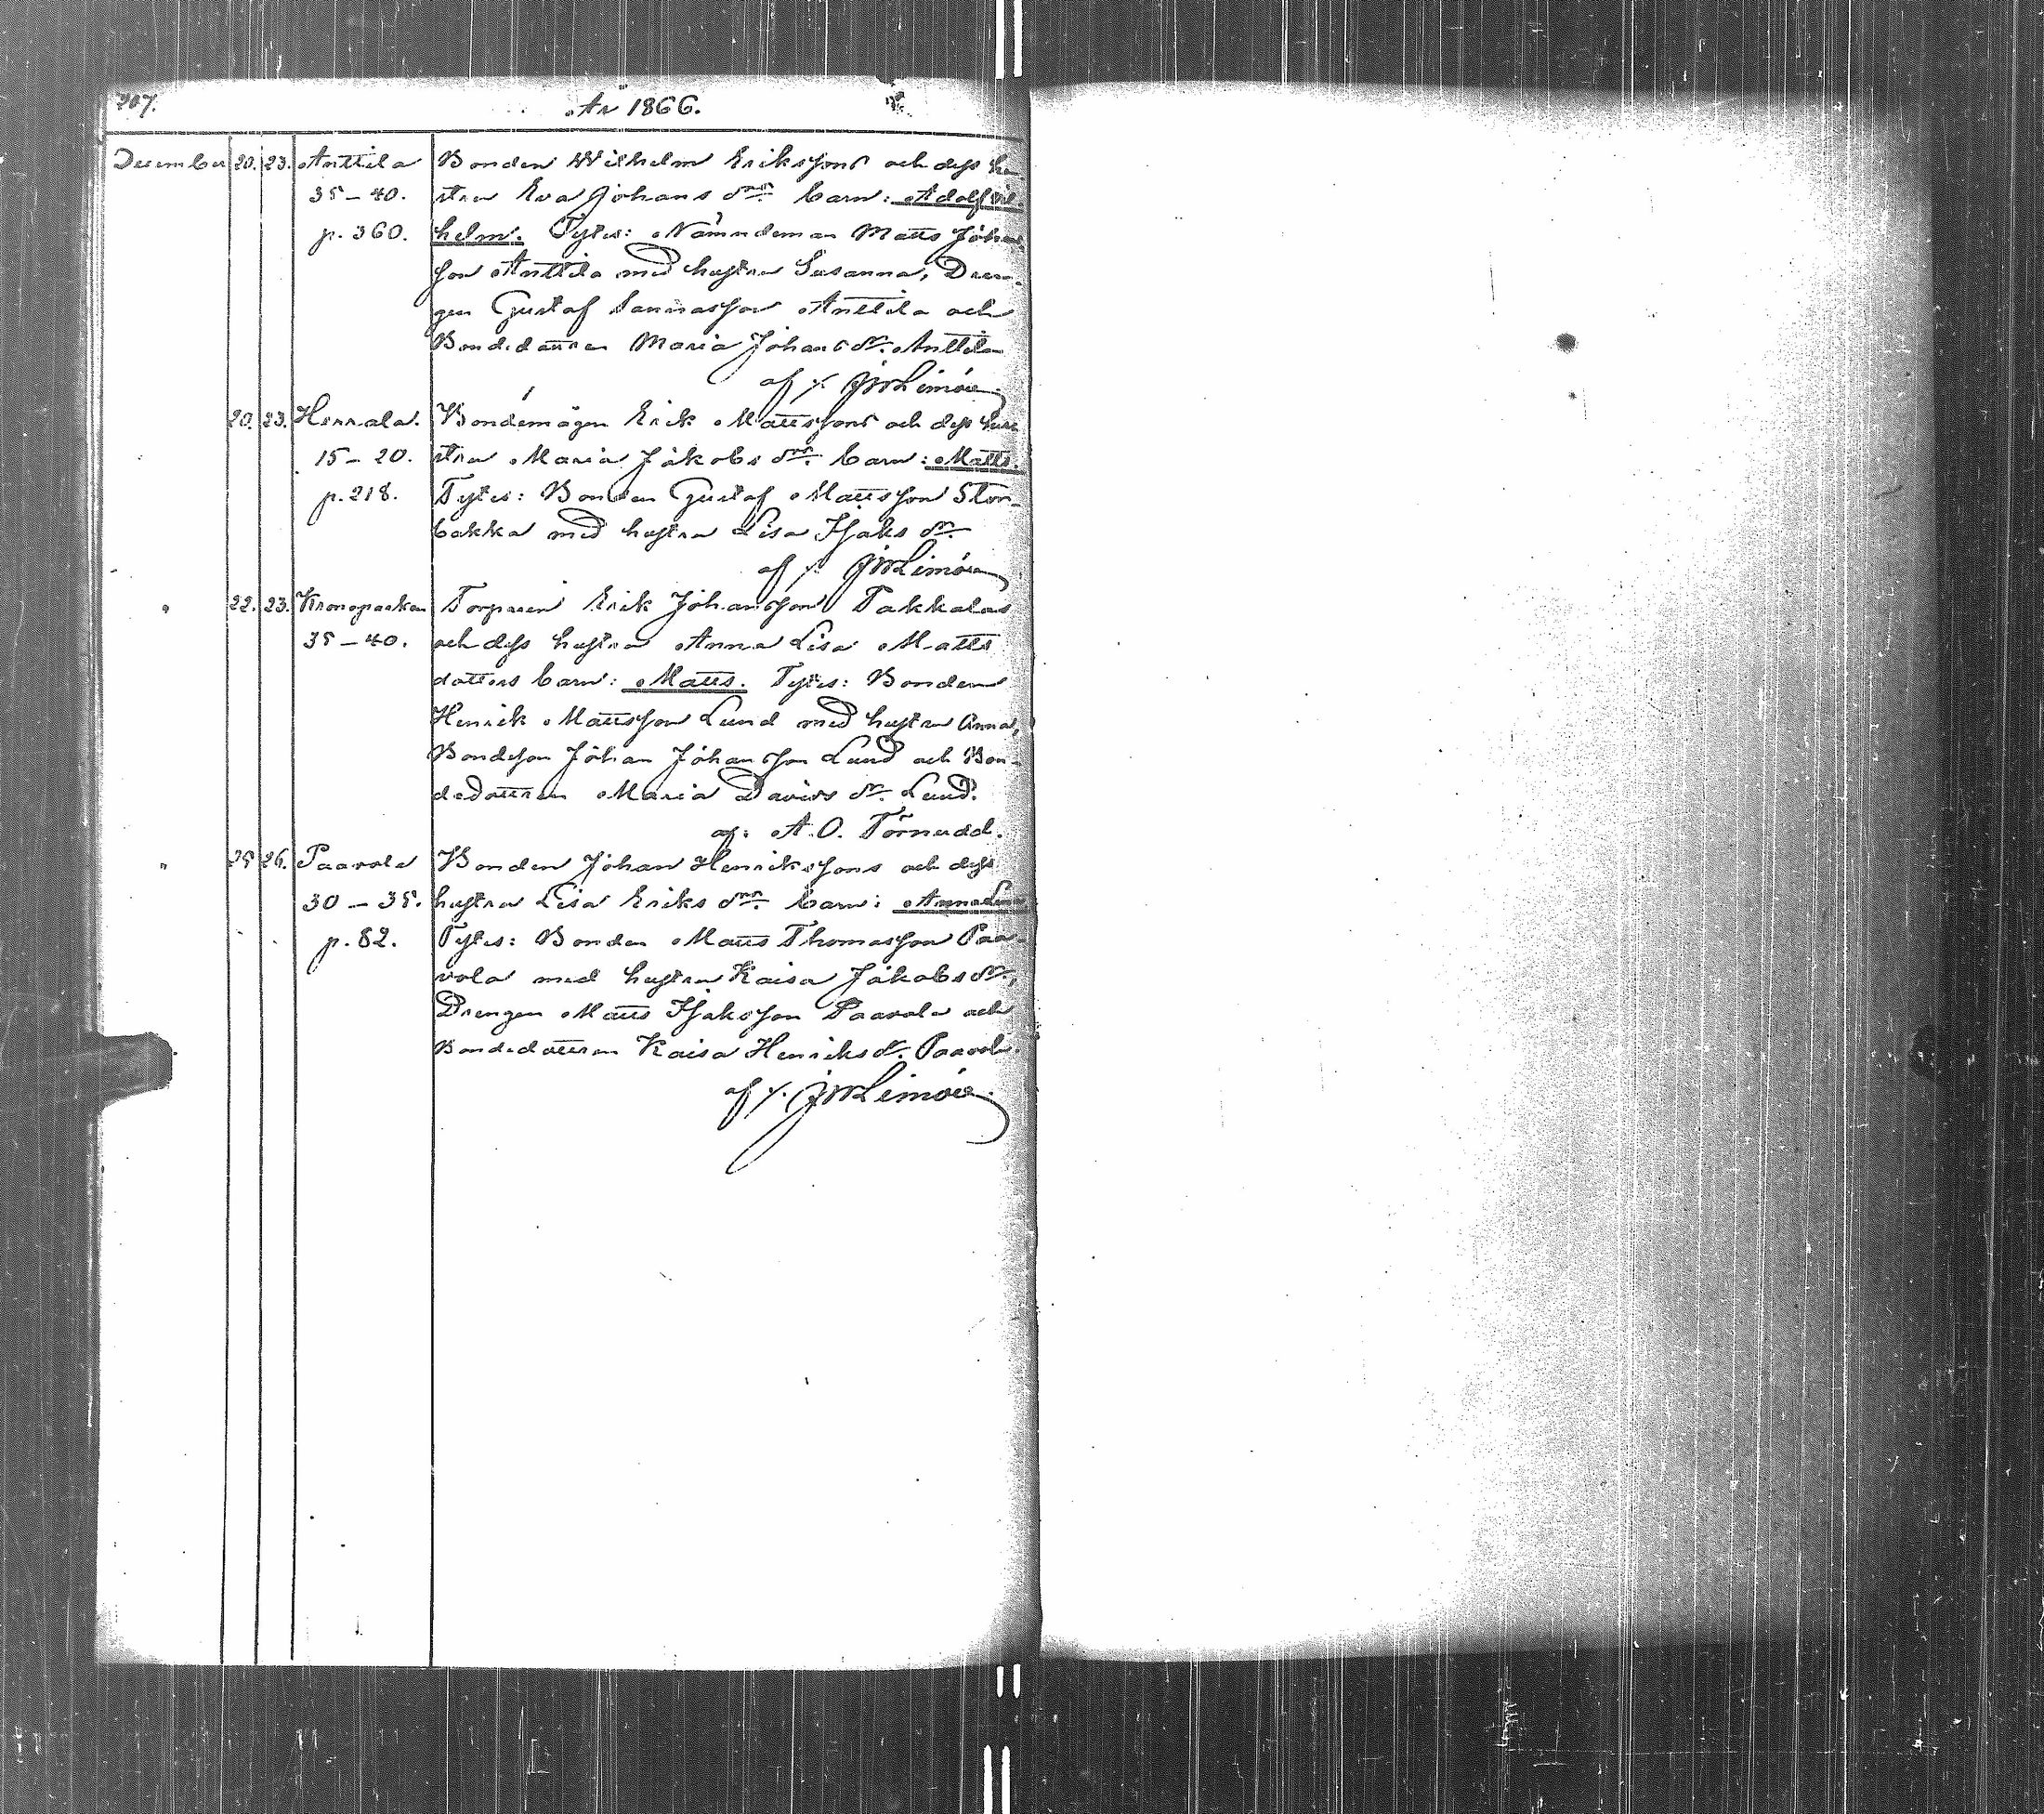 207.
År 1866.
December 20. 23. Anttila Bonden Wilhelm Erikssons och dess hu-
35–40. strus Eva Johans drs barn: Adolf Vil-
p. 360. helm. Tytes: Nämndeman Matts Johans-
son Anttila med hustru Susanna, Dren-
gen Gustaf Samuasson Anttila och
Bondedottren Maria Johans dr. Anttila
af J W Limón.
20. 23. Herrala. Bondemågen Erik Mattssons och dess hu-
15–20. strus Maria Jakobs drs barn: Matts.
p. 218. Tytes: Bonden Gustaf Mattsson Stor-
bakka med hustru Lisa Isaks dr
af J W Limón
" 22. 23. Kronoparken Torparen Erik Johansson Pakkalas
35–40. och dess hustru Anna Lisa Matts
dotters barn: Matts. Tytes: Bonden
Henrik Mattsson Lund med hustru Anna,
Bondeson Johan Johansson Lund och Bon-
dedottren Maria Davids dr. Lund.
af: A. O. Törnudd.
" 25 26. Paavola Bonden Johan Henrikssons och dess
30–35. hustru Lisa Eriks drs barn: Anna
p. 82. Tytes: Bonden Matts Thomasson Paa-
vola med hustru Kaisa Jakobs dr,
Drengen Matts Isaksson Paavola och
Bondedottren Kaisa Henriks dr. Paavola.
af J W Limón.